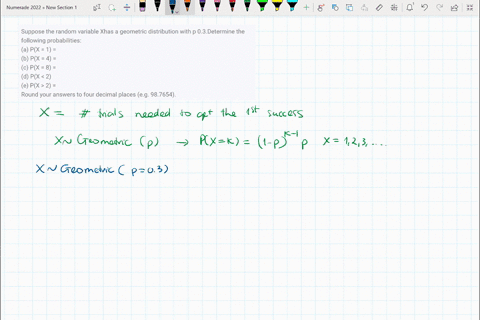 Numerade 2022 » New Section 1
Suppose the random variable Xthas a geometric distribution with p 0.3.Determine the
following probabilities:
(a) P(X = 1) =
(b) P(X = 4) =
(c) P(X = 8) =
(d) P(X < 2)
(e) P(X > 2) =
Round your answers to four decimal places (e.g. 98.7654).
X = # trials needed to get the 1st success
X~ Geometric (p) → P(X=k) = (1-p)^k-1 p X = 1,2,3, ...
X ~ Geometric ( p=0.3)